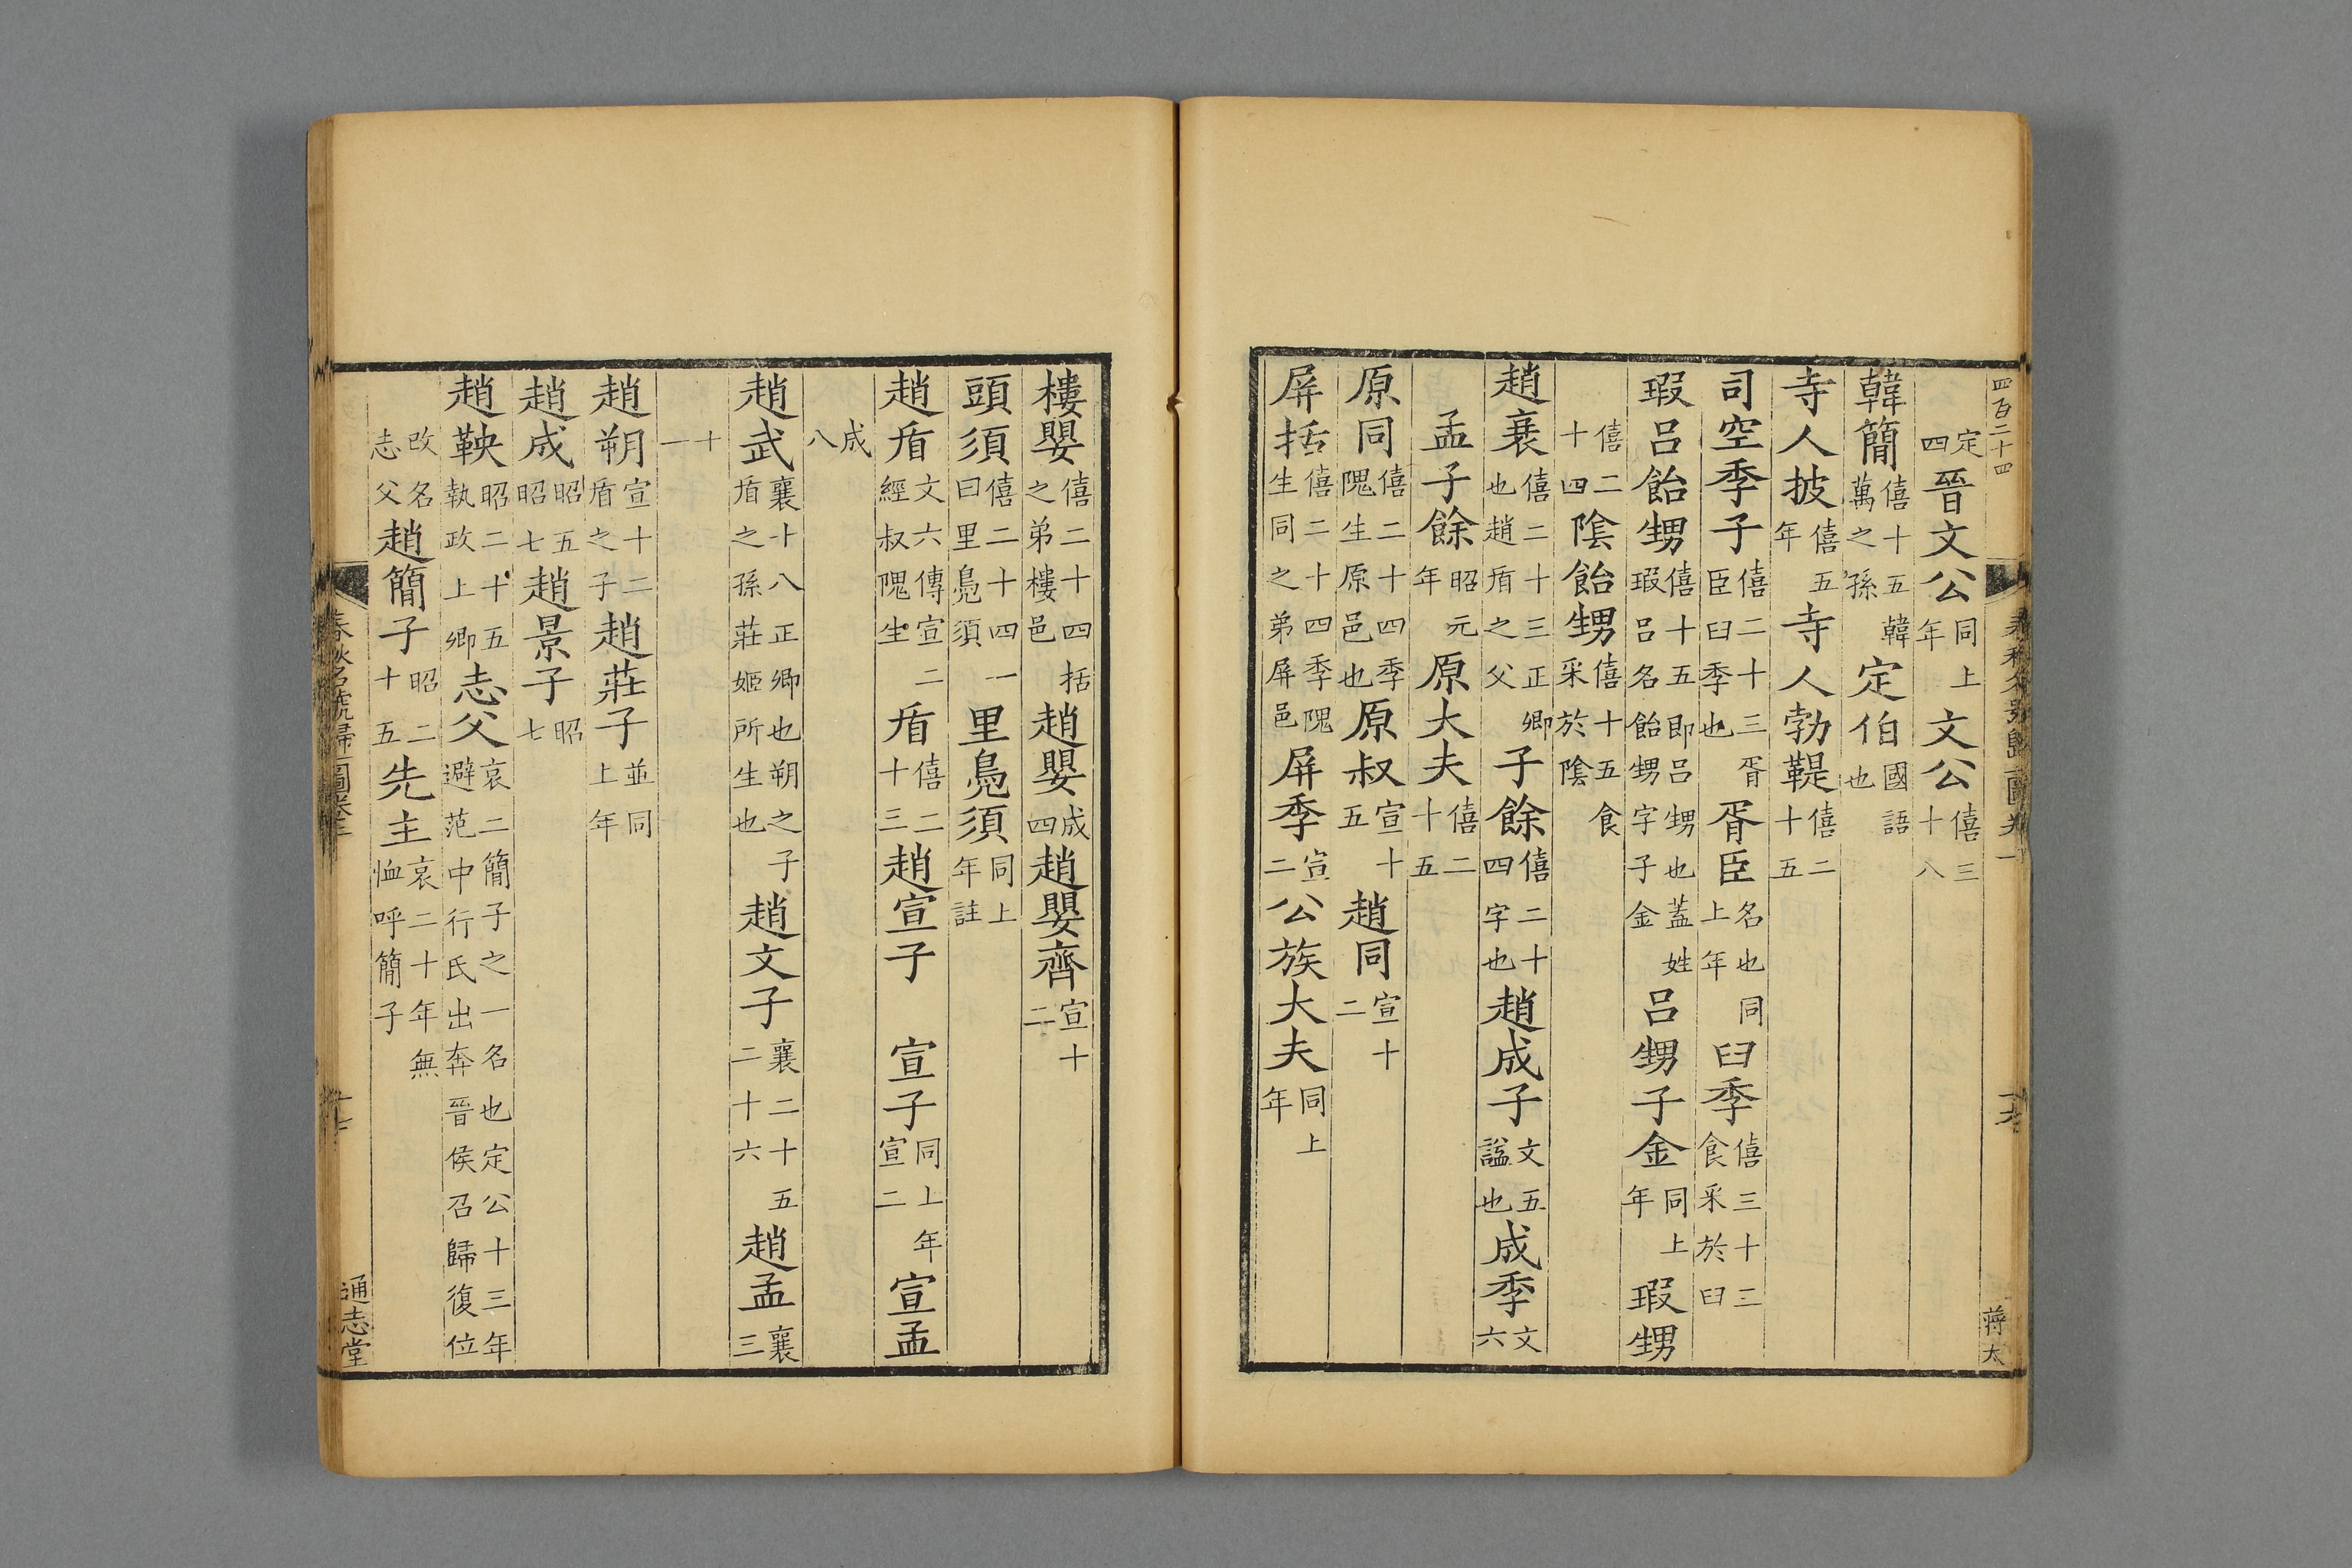 四百二十四
定四晉文公同上年文公僖三十八
韓簡僖十五韓萬之孫定伯國語也
寺人披僖五年寺人勃鞮僖二十五
司空季子僖二十三胥臣臼季也胥臣名也同上年臼季僖三十三食采於臼
瑕呂飴甥僖十五即呂甥也蓋姓瑕呂名飴甥字子金呂甥子金同上年瑕甥
僖二十四陰飴甥僖十五食采於陰
趙衰僖二十三正卿也趙盾之父子餘僖二十四字也趙成子文五諡也成季文六
孟子餘昭元年原大夫僖二十五
原同僖二十四季隗生原邑也原叔宣十五趙同宣十二
屏括僖二十四季隗生同之弟屏邑屏季宣二公族大夫同上年
蔣太
樓嬰僖二十四括之弟樓邑趙嬰成四趙嬰齊宣十二
頭須僖二十四一曰里鳧須里鳧須同上年註
趙盾文六傳宣二經叔隗生盾僖二十三趙宣子 宣子同上年宣二宣孟
成八
趙武襄十八正卿也朔之子盾之孫莊姬所生也趙文子襄二十五二十六趙孟襄三
十一
趙朔宣十二盾之子趙莊子並同上年
趙成昭五昭七趙景子昭七
趙鞅昭二十五執政上卿志父哀二簡子之一名也定公十三年避范中行氏出奔晉侯召歸復位
改名志父趙簡子昭二十五先主哀二十年無恤呼簡子
春秋名號歸一圖卷上
十七
通志堂